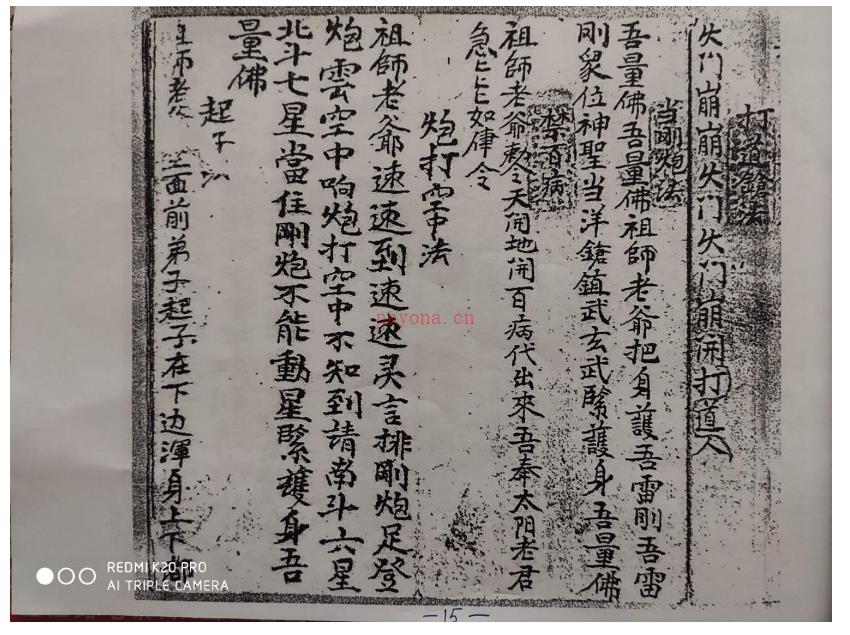 打道鎗法
火门崩崩火门火门崩開打道人
当剛炮法
吾量佛吾量佛祖師老爷把身護吾雷剛吾雷
剛衆位神聖当洋鎗鎮武玄武緊護身吾量佛
禁百病
祖師老爺敕令天開地開百病代出來吾奉太阳老君
急上上如律令
炮打空中法
祖師老爺速速到速速灵言排剛炮足登
炮雲空中响炮打空中不知到請南斗六星
北斗七星當住剛炮不能動星緊護身吾
量佛
起子
面前弟子起子在下边渾身上下
nayona.cn
REDMI K20 PRO
AI TRIPLE CAMERA
-15-